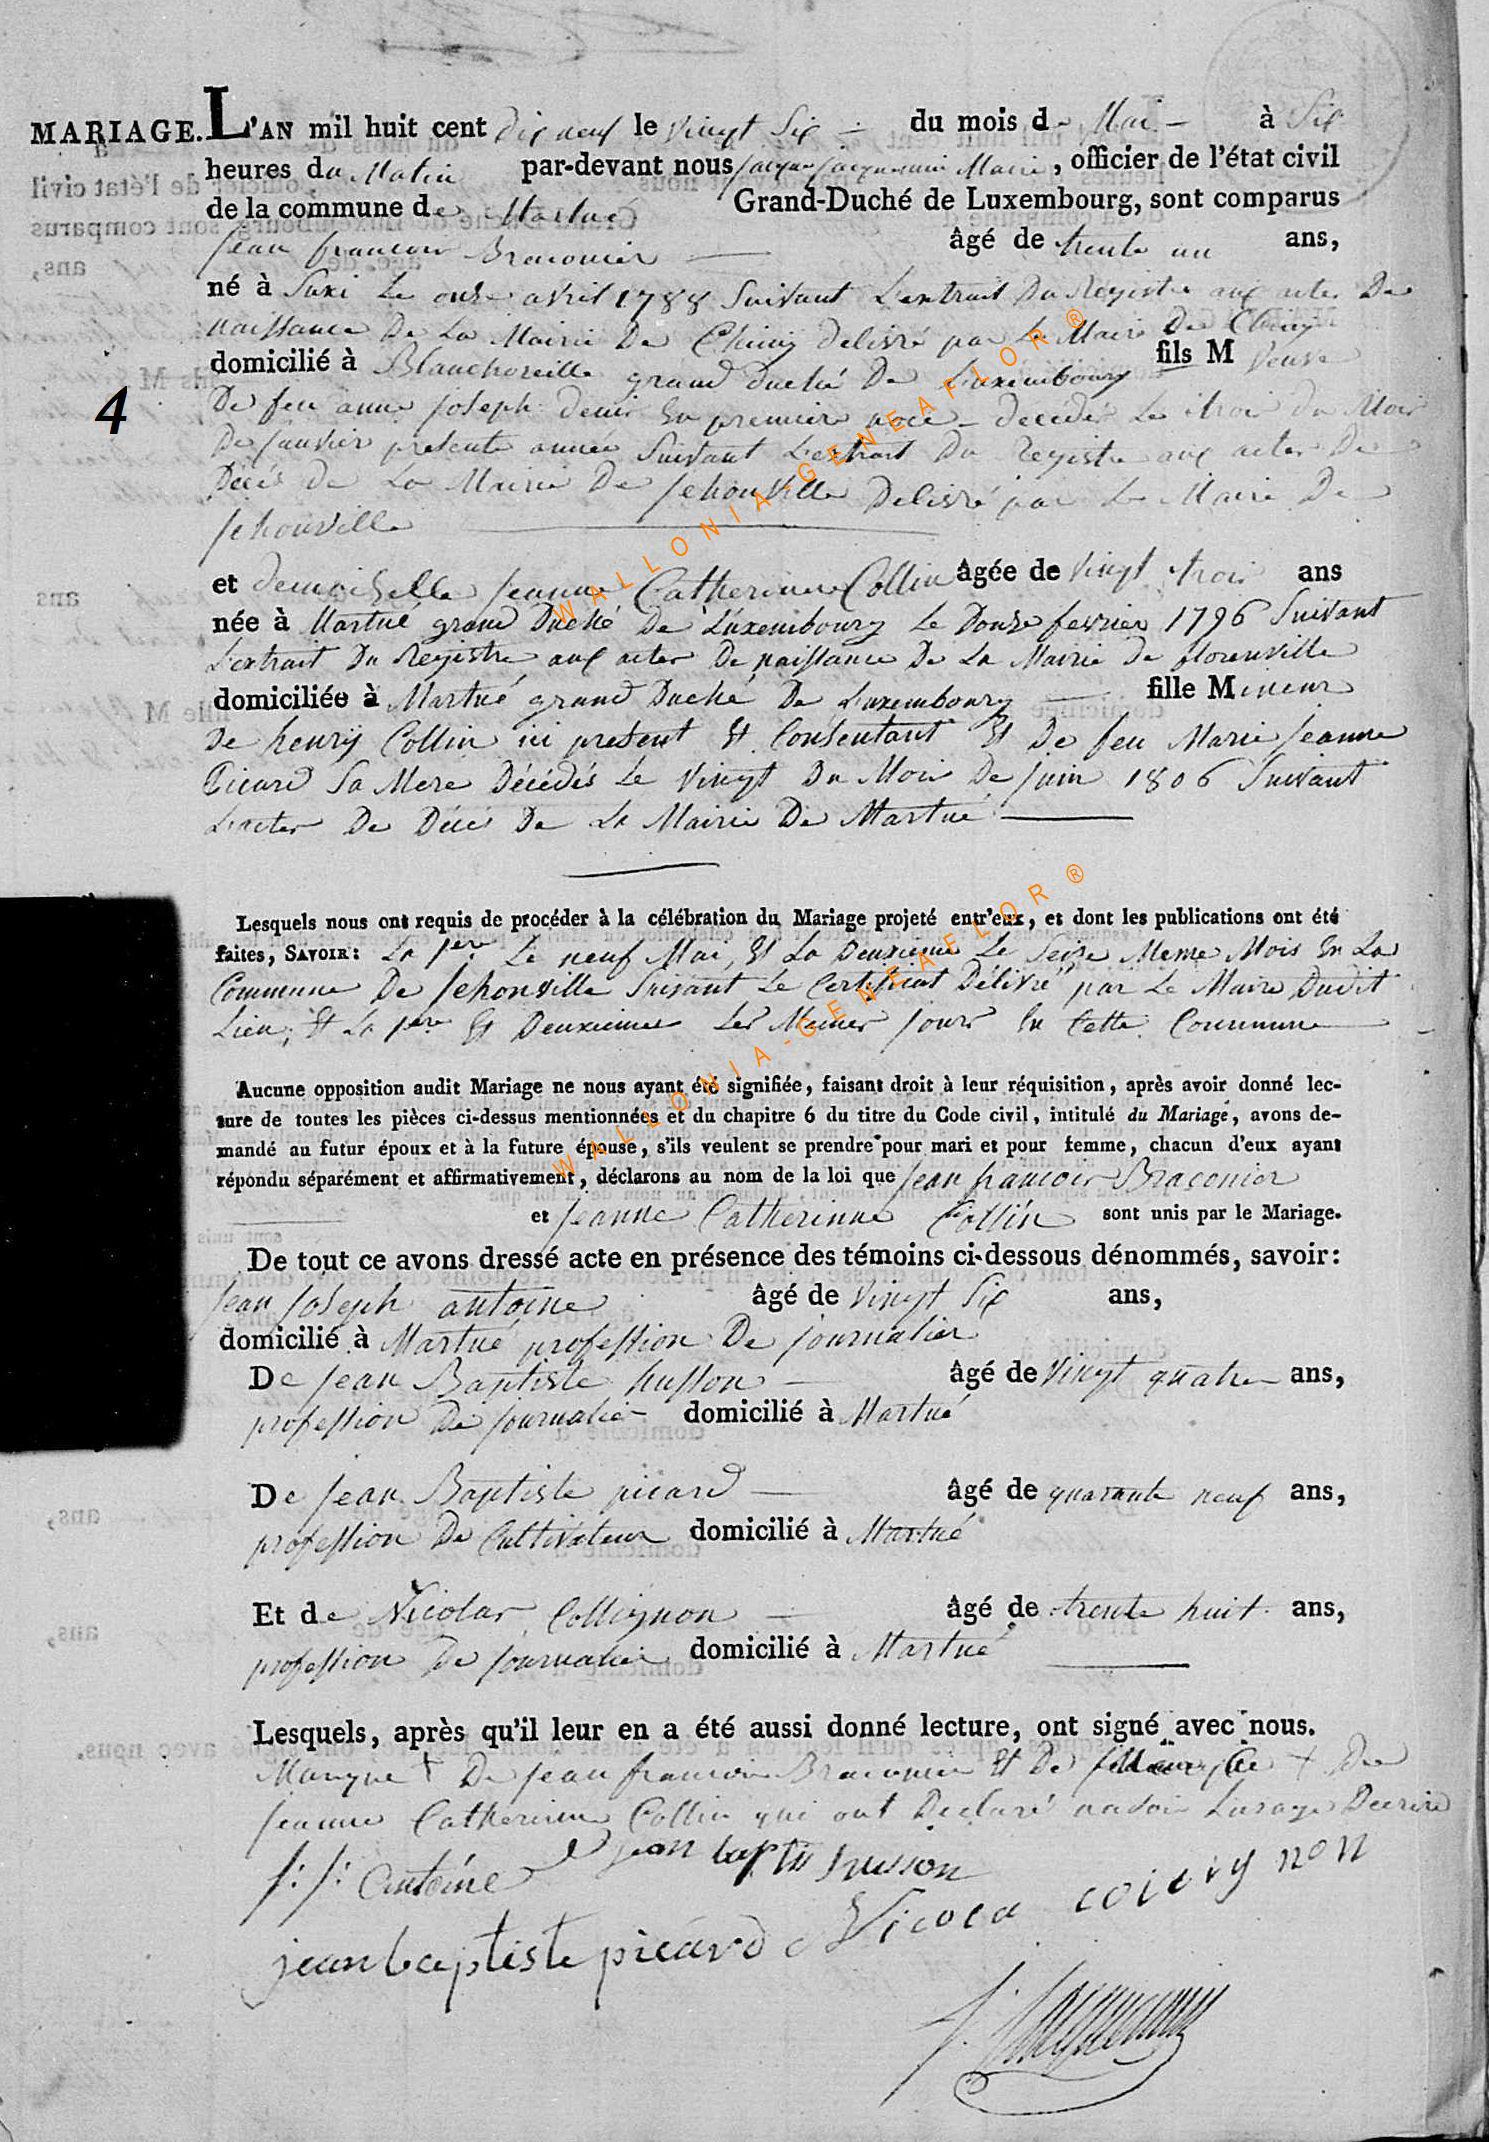 MARIAGE. L'AN mil huit cent dix neuf le vingt Six du mois de Mai à Six
heures du Matin par-devant nous Jacque Jacquemin Maire, officier de l'état civil
de la commune de Martué Grand-Duché de Luxembourg, sont comparus
Jean francois Braconier âgé de trente un ans,
né à Suxi Le onze avril 1788 Suivant L'extrait Du Registre aux actes De
naissance De La Mairie De Chiny delivré par Le Maire De Chiny
domicilié à Blanchoreille grand duché De Luxembourg fils M veuve
4
De feu anne Joseph denis En premiere noce decedée Le trois du Mois
De Janvier presente année Suivant L'extrait Du Registre aux actes De
Décès De La Mairie De Jehonville Delivré par Le Maire De
Jehonville
et demoiselle Jeanne Catherinne Collin âgée de vingt trois ans
née à Martué grand Duché De Luxembourg Le Douze fevrier 1796 Suivant
L'extrait Du Registre aux actes De naissance De La Mairie De florenville
domiciliée à Martué grand Duché De Luxembourg fille Mineur
De henry Collin ici present Et Consentant Et De feu Marie Jeanne
Picard Sa Mere Décédés Le vingt Du Mois De Juin 1806 Suivant
L'actes De Décé De La Mairie De Martué
Lesquels nous ont requis de procéder à la célébration du Mariage projeté entr'eux, et dont les publications ont été
faites, SAVOIR: La 1ere Le neuf Mai, Et La Deuxieme Le Seize Meme Mois En La
Commune De Jehonville Suivant Le Certificat Délivré par Le Maire Dudit
Lieu; Et La 1ere Et Deuxieme Les Memes jours En Cette Commune
Aucune opposition audit Mariage ne nous ayant été signifiée, faisant droit à leur réquisition, après avoir donné lec-
ture de toutes les pièces ci-dessus mentionnées et du chapitre 6 du titre du Code civil, intitulé du Mariage, avons de-
mandé au futur époux et à la future épouse, s'ils veulent se prendre pour mari et pour femme, chacun d'eux ayant
répondu séparément et affirmativement, déclarons au nom de la loi que Jean francois Braconier
et Jeanne Catherinne Collin sont unis par le Mariage.
De tout ce avons dressé acte en présence des témoins ci-dessous dénommés, savoir:
Jean Joseph antoine âgé de vingt Six ans,
domicilié à Martué profession De journalier
De Jean Baptiste husson âgé de vingt quatre ans,
profession De journalier domicilié à Martué
De Jean Baptiste picard âgé de quarante neuf ans,
profession De Cultivateur domicilié à Martué
Et de Nicolas Collignon âgé de trente huit ans,
profession De journalier domicilié à Martué
Lesquels, après qu'il leur en a été aussi donné lecture, ont signé avec nous.
Marque + De Jean francois Braconier Et De + De
Jeanne Catherinne Collin qui ont Declaré navoir Lusage Decrire
J: J: Antoine jean baptis husson
jean baptiste picard Nicola colignon
J. Jacquemin
WALLONIA-GENEAFLOR®
WALLONIA-GENEAFLOR®